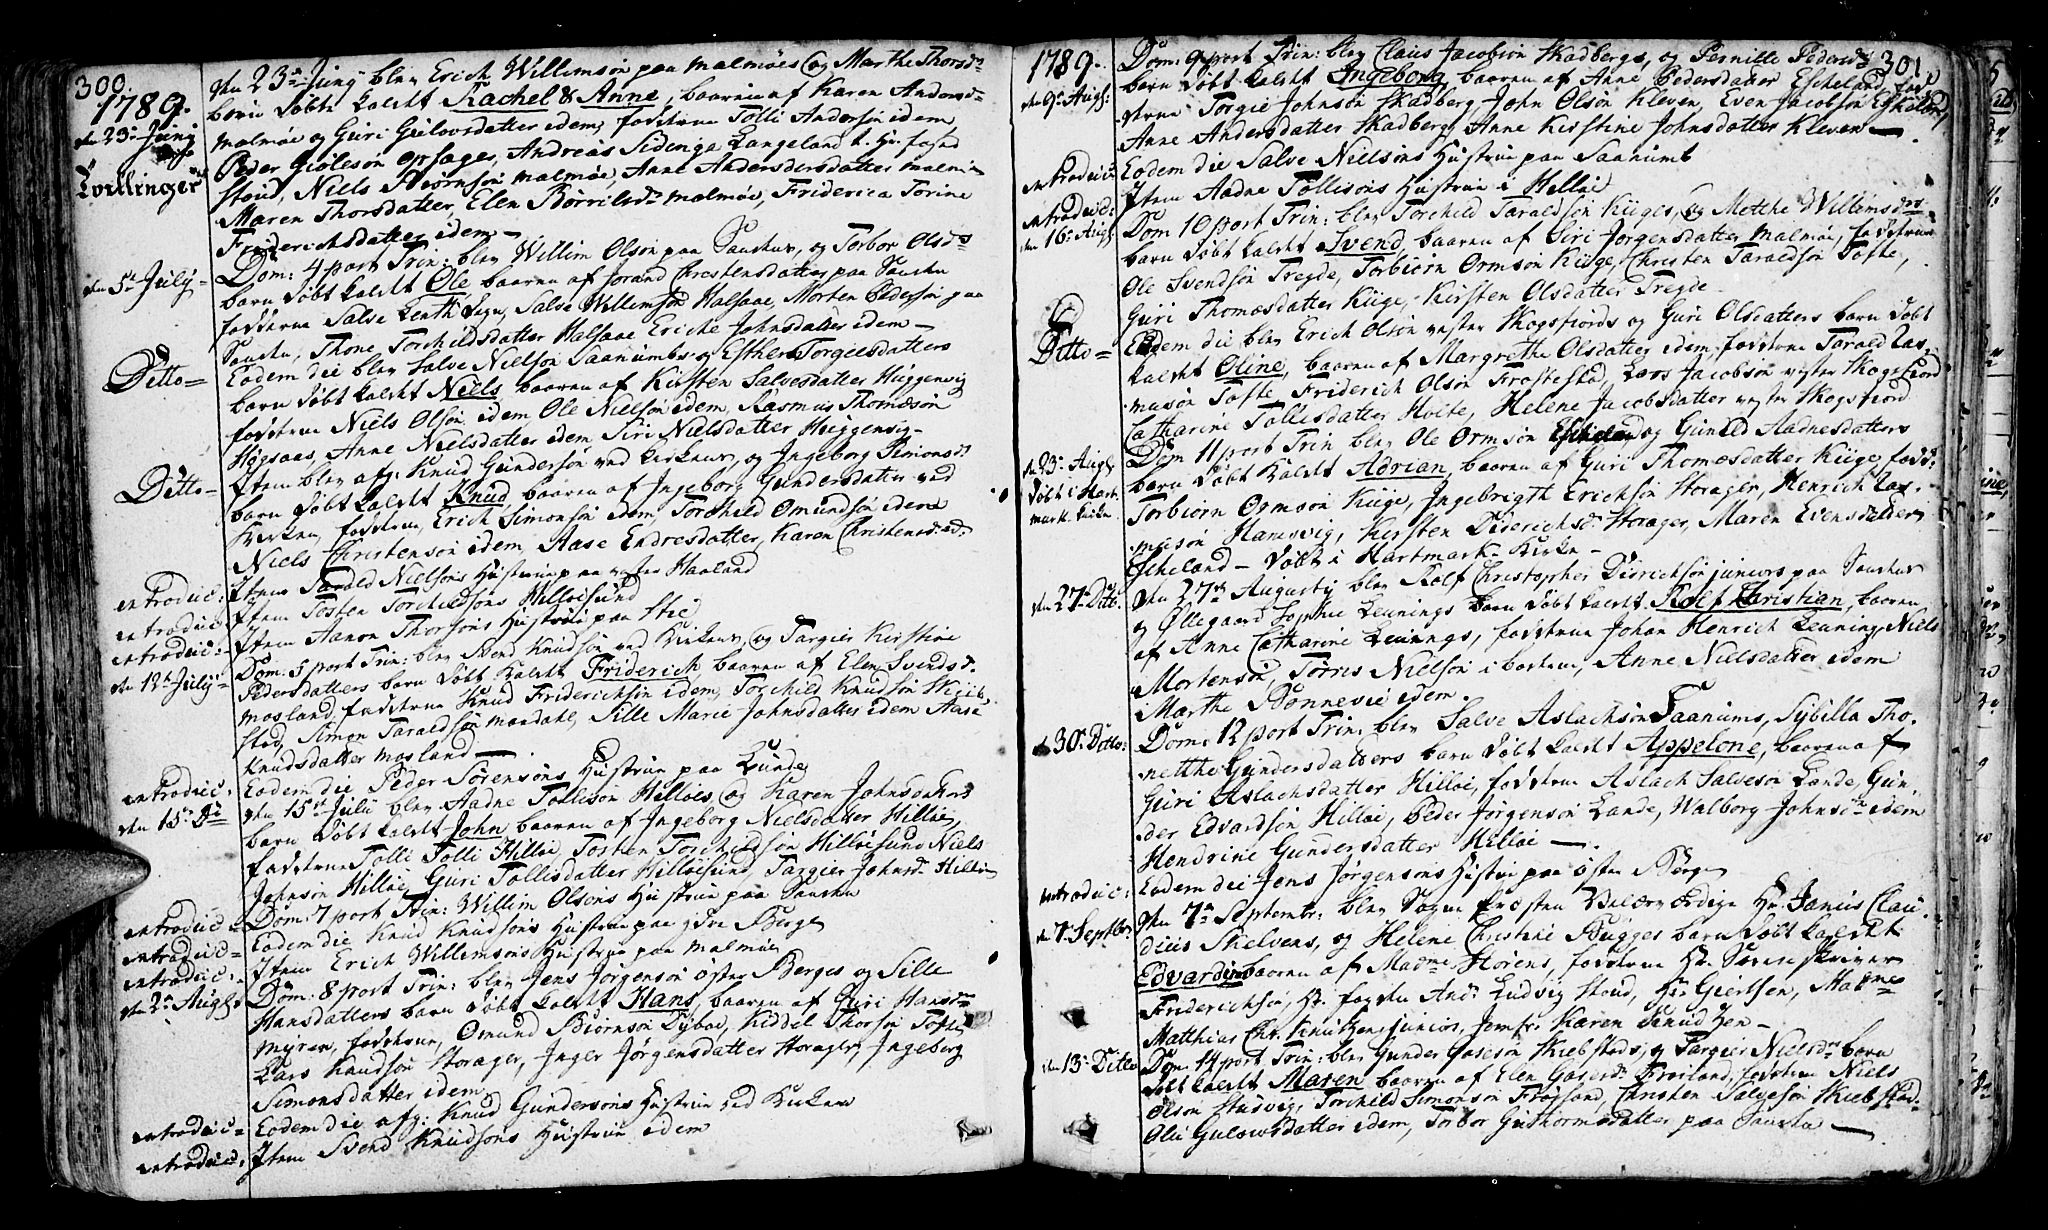 300.
1789.
den 23de Junij
Tvillinger
den 23de Junij blev Erich Willemsøn paa Malmøes og Marthe Thorsdr
børn døbt kaldet Rachel & Anne, baaren af Karen Andersd:
Malmøe og Guri Gulovsdatter idem, faddrene Tolli Andersøn idem
Peder Giølesøn Opsager, Andreas Sidenga Langeland t. Hr. foged
Stoud, Niels Biørnsøn Malmøe, Anne Andersdersdatter Malmøe
Maren Thorsdatter, Elen Børrilsdr Malmøe, Friderica Torine
Friderichsdatter idem
den 5te July
Dom: 4 post Trin: blev Willim Olsøn paa Sanden, og Torbor Olsdr
barn døbt kaldet Ole baaren af Jorand Christensdatter paa Sanden
faddrene Salve Willimsøn Halsaae, Morten Pedersøn paa
Sanden, Thone Torchildsdatter Halsaae Eriche Johnsdatter idem
Ditto
Eodem die blev Salve Nielsøn Saanumbs og Esther Torgiersdatters
barn døbt kaldet Niels, baaren af Kirsten Salvesdatter Huggenvig
faddrene Niels Olsøn idem Ole Nielsøn idem, Rasmus Thomæsøn
Høgsaas, Anne Nielsdatter idem Siri Nielsdatter Huggenvig
Ditto
Item blev afg: Knud Gundersøn ved Kirken, og Ingeborg Simonsdr
barn døbt kaldet Knud baaren af Ingeborg Gundersdatter ved
Kirken, faddrene, Erich Simonsøn idem, Torchild Omundsøn idem
Niels Christensøn idem, Aase Endresdatter, Karen Christensd: id:
introduc: Item Tarald Nielsøns Hustrue paa vestre Haaland
introduc: Item Tosten Torchildsøns Hilløesund
introduc: Item Aanon Thorsøns Hustrue paa Stie
den 12te July
Dom: 5 post Trin: blev Svend Knudsøn ved Kirken, og Targier Kirstine
Pedersdatters barn døbt kaldet Friderich baaren af Elen Svendsd.
Mosland, faddrene Knud Friderichsøn idem, Torchild Knudsøn Skieb
stad, Simon Taraldsøn Mordahl, Sille Marie Johnsdatter idem Aase
Knudsdatter Mosland
introduc: Eodem die Peder Sørensøns Hustrue paa Lunde
den 15de Do
den 15de July blev Aadne Tollisøn Hilløes, og Karen Johnsdatters
barn døbt kaldet John baaren af Ingeborg Nielsdatter Hilløe,
faddrene Tolli Tolli Hilløe, Tosten Torchildsøn Hilløesund Niels
Johnsøn Hilløe, Guri Tollisdatter Hilløesund, Targier Johnsdr Hilløe
introduc: Dom: 7 post Trin: Willem Olsøns Hustrue paa Sanden
introduc: Eodem die Knud Knudsøns Hustrue paa ydre Berge
introduc: Item Erich Willemsøns Hustrue paa Malmøe
den 2de Augst
Dom: 8 post Trin: blev Jens Jørgensøn øster Berges og Sille
Hansdatters barn døbt kaldet Hans, baaren af Guri Hansdr
Myren, faddrene, Omund Biørnsøn Dybo, Kiddel Thorsøn Tofte,
Lars Knudsøn Storager, Inger Jørgensdatter Storager, Ingeborg
Simonsdatter idem
introduc: Eodem die afg: Knud Gundersøns Hustrue ved Kirken
introduc: Item Svend Knudsøns Hustrue idem
1789.
301
den 9de Augst:
Dom: 9 post Trin: blev Claus Jacobsøn Skadbergs, og Pernille Pedersdr
barn døbt kaldet Ingeborg, baaren af Anne Pedersdatter Escheland, fad-
drene Torgie Johnsøn Skadberg, John Olsøn Kleven, Even Jacobsøn Escheland,
Anne Andersdatter Skadberg, Anne Kirstine Johnsdatter Kleven
introduc: Eodem die Salve Nielsøns Hustrue paa Saanumb
introduc: Item Aadne Tollisøns Hustrue i Hilløe
den 16de Augst
Dom 10 post Trin: blev Torchild Taraldsøn Kiiges, og Metthe Willimsdrs
barn døbt kaldet Svend, baaren af Siri Jørgensdatter Malmøe, faddrene
Ole Svendsøn Tregde, Torbiørn Ormsøn Kiige, Christen Taraldsøn Tofte,
Guri Thomæsdatter Kiige, Kirsten Olsdatter Tregde
Ditto
Eodem die blev Erich Olsøn vester Skogsfiords og Guri Olsdatters barn døbt
kaldet Oline, baaren af Margrethe Olsdatter idem, faddrene Tarald Ras-
musøn Tofte Friderich Olsøn Frøstestad, Lars Jacobsøn vester Skogsfiord
Catharine Tollisdatter Holte, Helene Jacobsdatter vester Skogsfiord
den 23de Augst
døbt i Hart
mark kirke
Dom 11 post Trin blev Ole Ormsøn Escheland og Gunild Aadnesdatters
barn døbt kaldet Adrian, baaren af Guri Thomæsdatter Kiige, fadd:
Torbiørn Ormsøn Kiige, Ingebrigth Erichsøn Storager, Henrich Ras-
musøn Hamsvig, Kirsten Diderichsdr Storager, Maren Evensdatter
Escheland - døbt i Hartmark Kirke
den 27de Ditto
den 27de Augusty blev Rolf Christopher Didrichsøn juniors paa Sanden
og Øllegaard Sophie Leunings barn døbt kaldet Rolf Christian, baaren
af Anne Catharine Leunings, faddrene Johan Henrich Leuning, Niels
Mortensøn, Tørris Nielsøn i bostrue, Anne Nielsdatter idem
Marthe Bonnevie idem.
den 30te Ditto
Dom: 12 post Trin: blev Salve Aslachsøn Saanums, Sybilla Tho-
nethe Gundersdatters barn døbt kaldet Appelone, baaren af
Guri Aslachsdatter Hilløe, faddrene Aslach Salvesøn Lande, Gun-
der Edvardsøn Hilløe, Peder Jørgensøn Lande, Walborg Johnsdr idem
Hendrine Gundersdatter Hilløe
introduc: Eodem die Jens Jørgensøns Hustrue paa østre Berge
den 7de Septbr
den 7de Septembr: blev Sogne Præsten Velærværdige Hr. Janus Clau-
dius Skelvens, og Helene Christine Bugges barn døbt kaldet
Edvardine baaren af Madme Hørens, faddrene Hr. Sorenskriver
Friderichsen, Hr. fogden And: Ludvig Stoud, Hr. Giertsen, Madme
Matthias Chr. Knutzen junior, Jomfr: Karen Knudtzen
den 13de Ditto
Dom. 14 post Trin: blev Gunder Gasesøn Skiebstads, og Targier Nielsdr barn
døbt kaldet Maren baaren af Elen Gasesdr Frøiland, faddrene Niels
Olsøn Stusvig, Torchild Simonsøn Frøysland, Christen Salvesøn Skiebstad,
Olu Gulowsdatter idem, Torbor Guthormsdatter paa Sanden